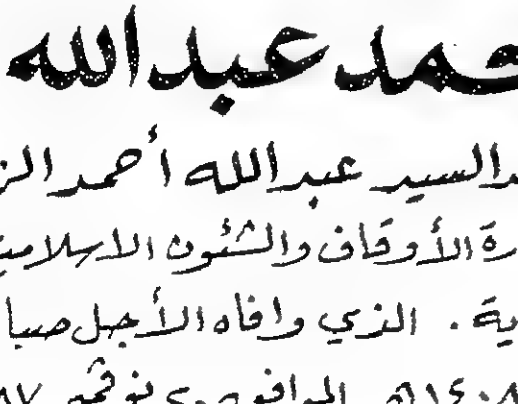 حمد عبدالله
دالسيد عبدالله أحمد الز
رة الأوقاف والشئون الاسلامية
ية . الذي وافاه الأجل صبا
١٤٠٨هـ الموافق ٢٠ نوفمبر ٨٧